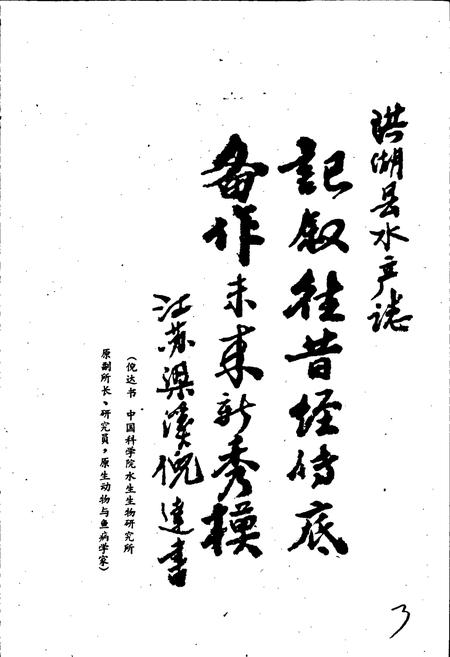 洪湖县水产志
记叙往昔经时底
备作未来新秀模
江苏梁溪倪达书
(倪达书 中国科学院水生生物研究所
原副所长、研究員,原生动物与鱼病学家)
3